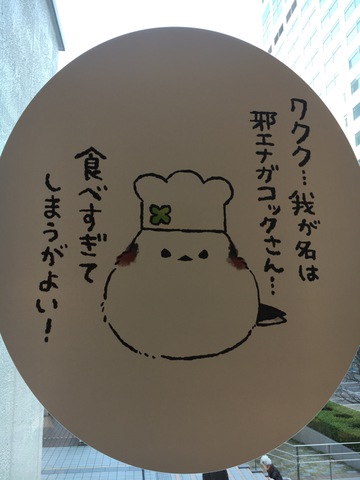 ワクク…我が名は
邪エナガコックさん…
食べすぎて
しまうがよい!